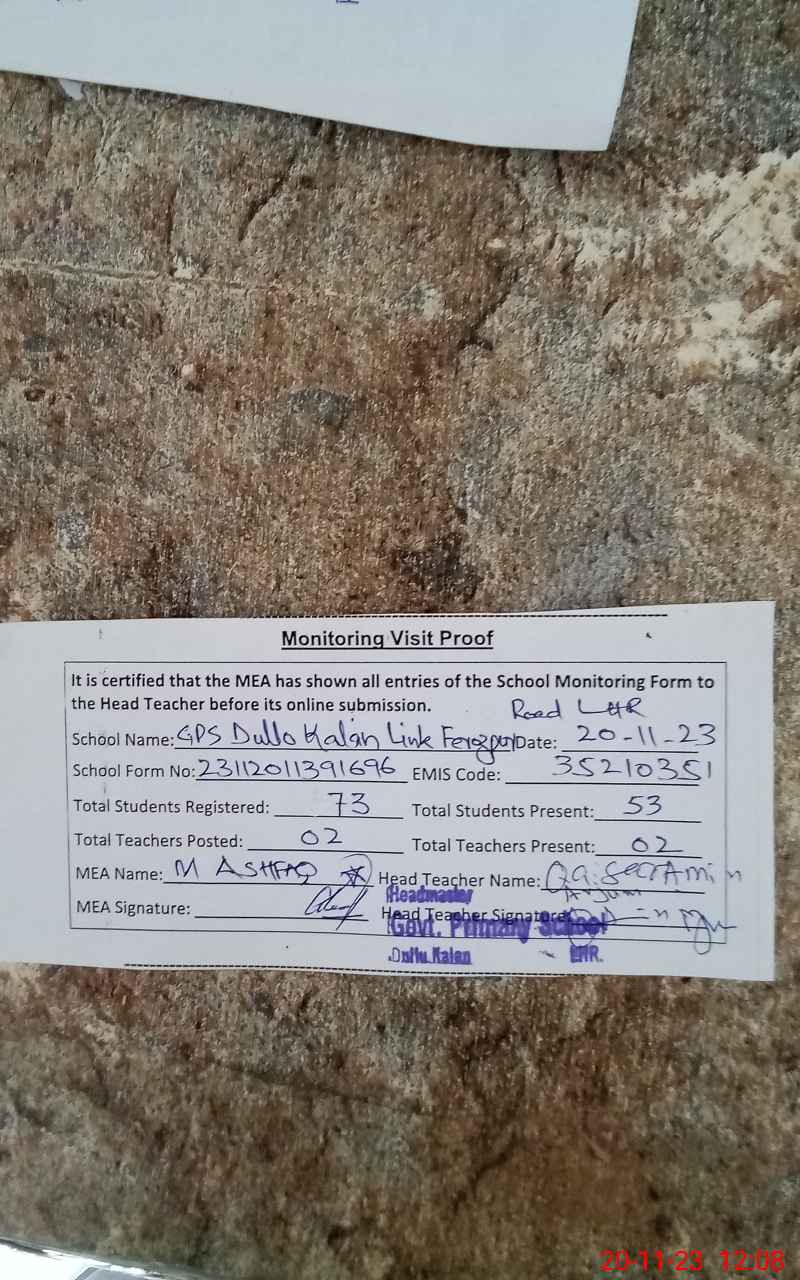 Monitoring Visit Proof
It is certified that the MEA has shown all entries of the School Monitoring Form to
the Head Teacher before its online submission.
Road LHR
School Name: GPS Dullo Kalan Link Ferozpur Date: 20-11-23
School Form No: 23112011391696 EMIS Code: 35210351
Total Students Registered: 73 Total Students Present: 53
Total Teachers Posted: 02 Total Teachers Present: 02
MEA Name: M ASHFAQ Head Teacher Name: Amin
Anjum
Headmaster
MEA Signature: Head Teacher Signature:
Govt. Primary School
Dullu Kalan LHR.
20-11-23 12:08